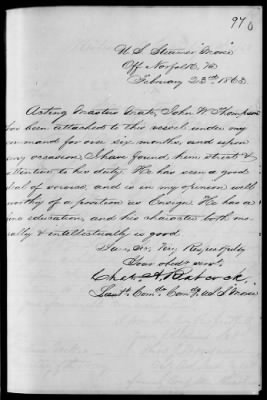 97
U. S. Steamer "Morse"
Off Norfolk, Va
February 23rd 1863.
Acting Masters Mate, John W Thompson
has been attached to this vessel under my
command for over six months, and upon
any occasion I have found him strict &
attention to his duty. He has seen a good
deal of service, and is in my opinion well
worthy of a position as Ensign. He has a
fine education, and his character both mo-
rally & intellectually is good
I am, Sir, Very Respectfully
Your obdt servt.
Chas. A. Babcock.
Lieut. Comdr. Comdg. U.S.S. Morse